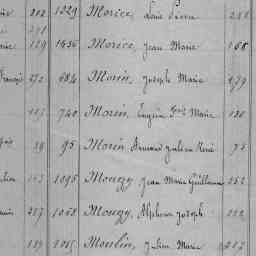 202 1229 Morice, Louis Pierre 288
291
129 1456 Morice, Jean Marie 168
François 272 584 Morin, Joseph Marie 279
117 740 Morin, Eugène Marie 130
39 95 Morin Armand Julien René 73
143 1095 Mougy Jean Marie Guillaume 252
257 1058 Mougy, Alphonse Joseph 112
189 1065 Moulin, Julien Marie 217